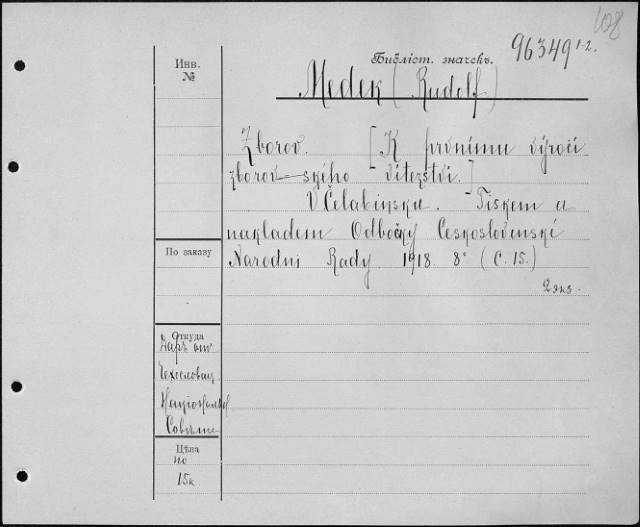 108
96349 1-2.
Инв.
№
Библіот. значекъ.
Medek (Rudolf)
Zborov. [K prvnímu výročí
zborov-ského vítezství.]
V Čelabinsku. Tiskem a
nakladem Odbočky Československé
Narodni Rady 1918 8° (С. 15.)
2 экз.
По заказу
Откуда
Даръ от
Чехословац
Націонал
Совѣта
Цѣна
по
15к